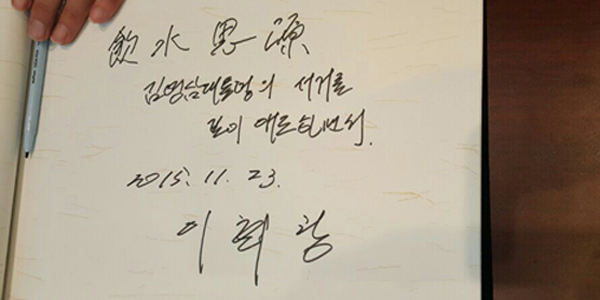 飮水思源
김영삼대통령의 서거를
깊이 애도하면서.
2015. 11. 23.
이회창